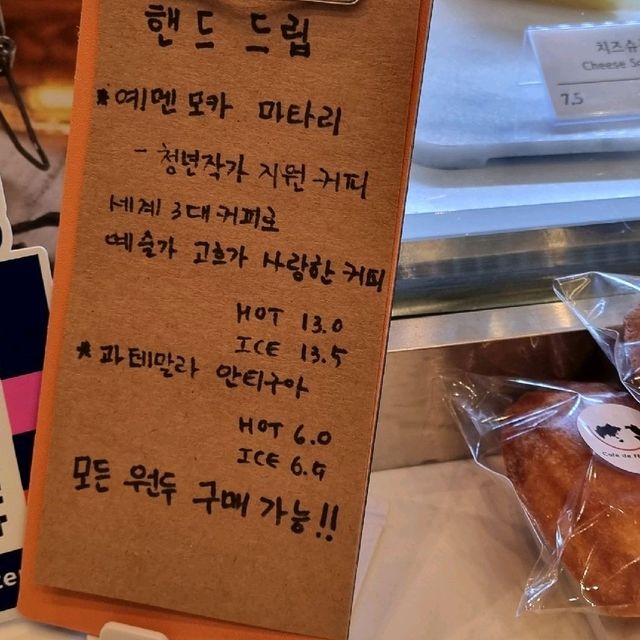 핸드 드립
* 예멘 모카 마타리
- 청년작가 지원 커피
세계 3대 커피로
예술가 고흐가 사랑한 커피
HOT 13.0
ICE 13.5
* 과테말라 안티구아
HOT 6.0
ICE 6.5
모든 원두 구매 가능!!
치즈
Cheese
7.5
Cafe de